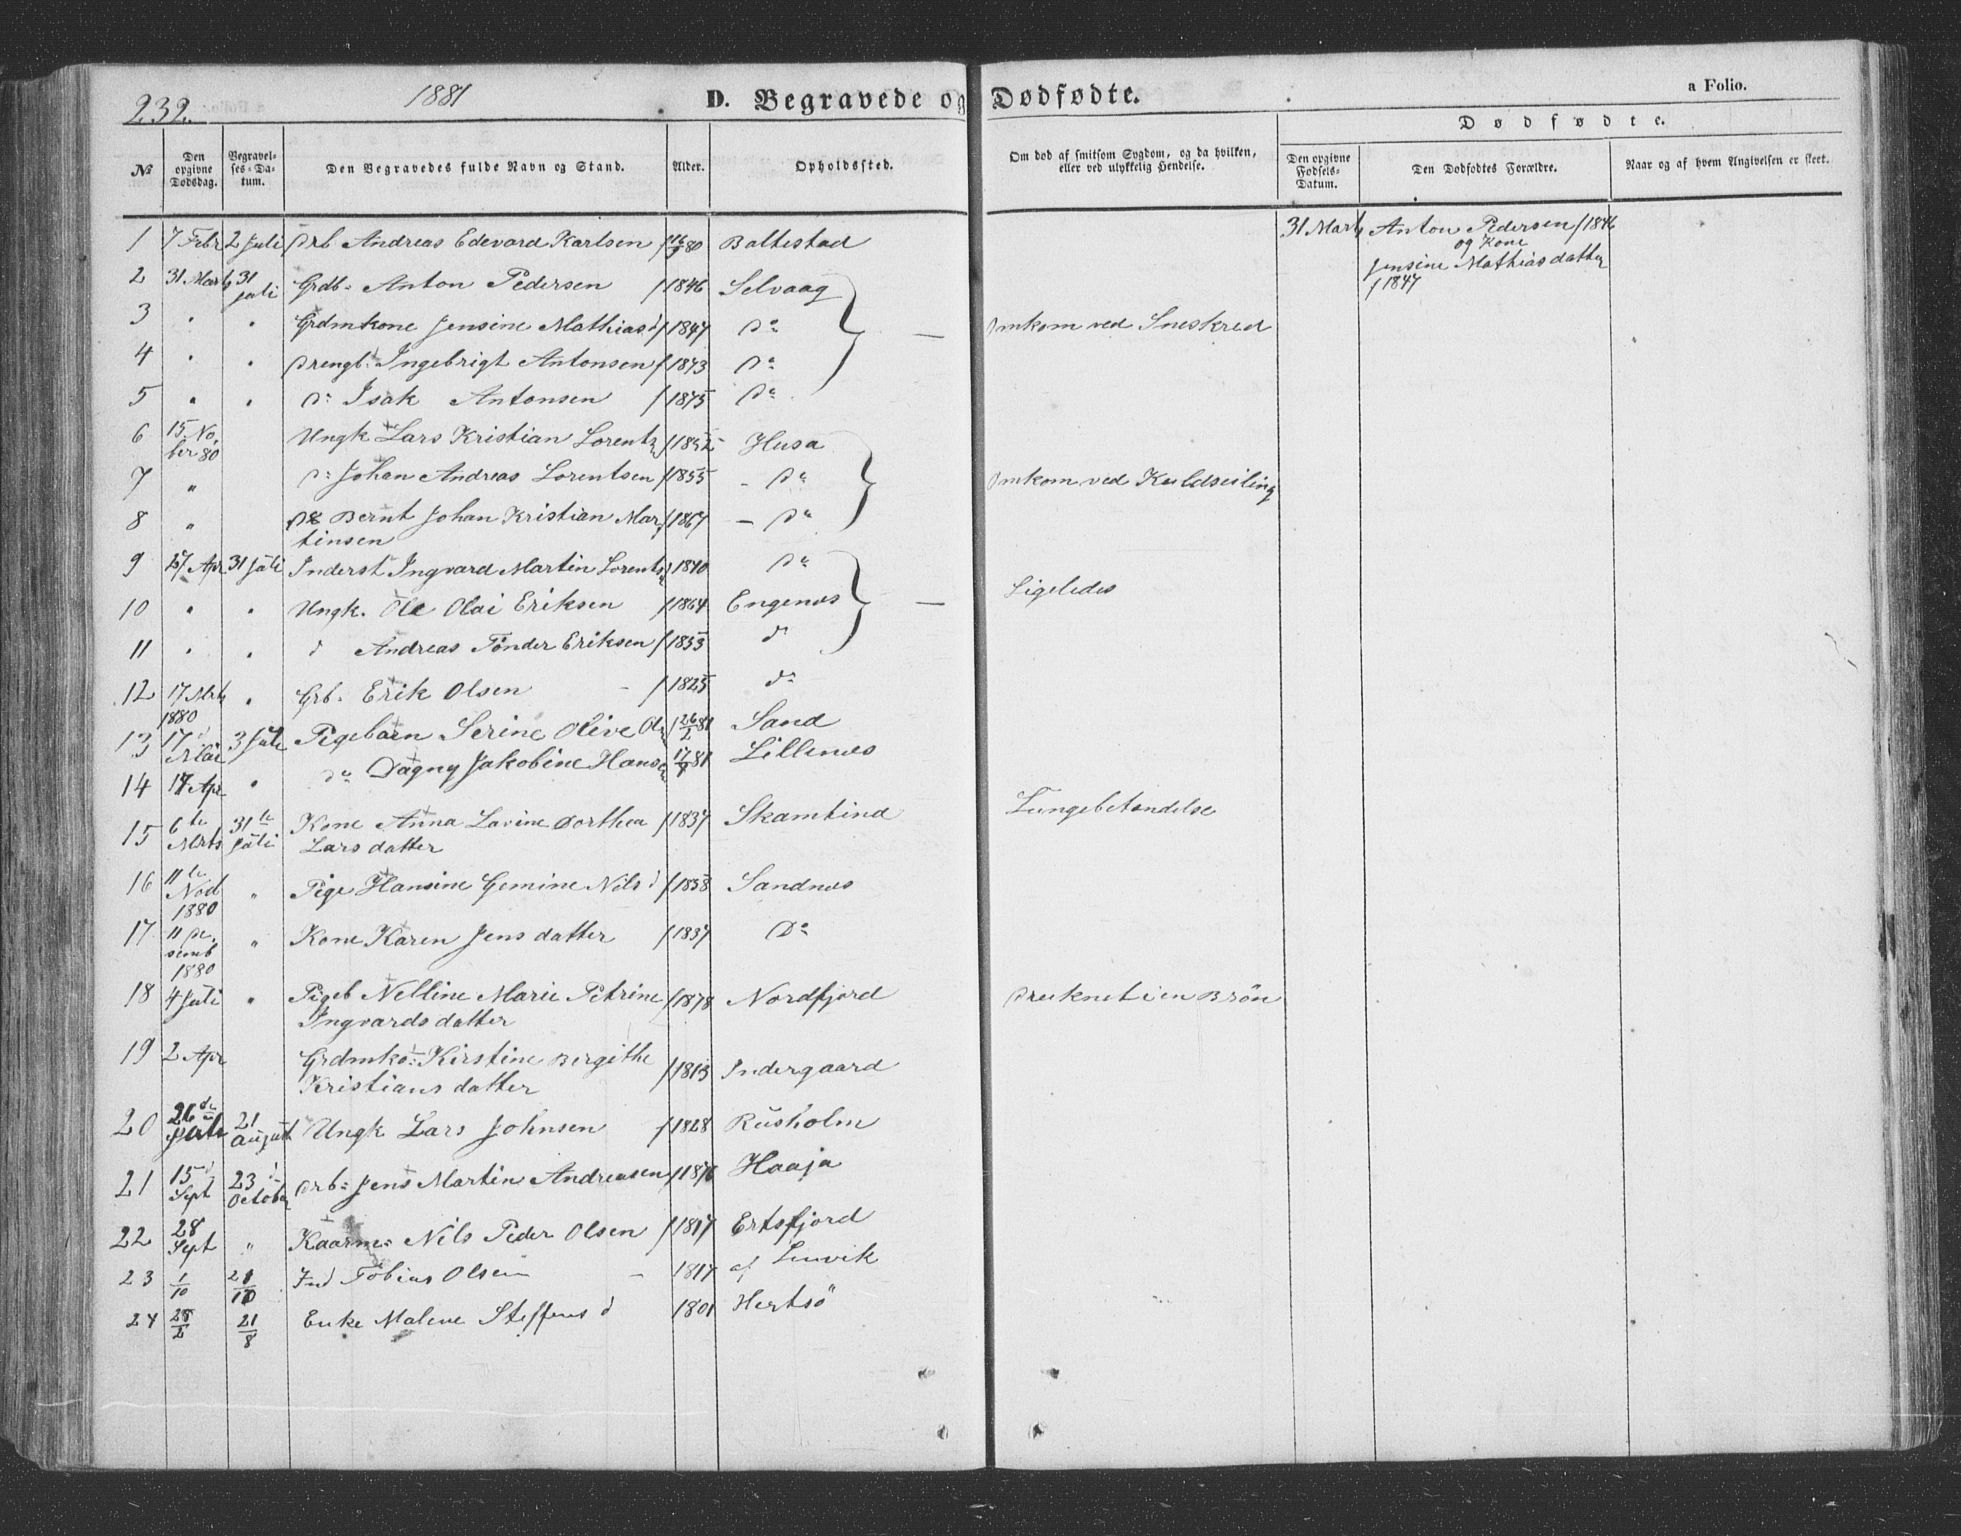 232.
1881
D. Begravede og Dødfødte.
a Folio.
Dødfødte.
№
Den opgivne Dødsdag.
Begravelses-Datum.
Den Begravedes fulde Navn og Stand.
Alder.
Opholdssted.
Om død af smitsom Sygdom, og da hvilken, eller ved ulykkelig Hendelse.
Den opgivne Fødsels-Datum.
Den Dødfødtes Forældre.
Naar og af hvem Angivelsen er skeet.
1 7 Febr 2 Juli Drb Andreas Edevard Karlsen f 16/9 80 Baltestad
31 Marts Anton Pedersen f 1846
og Kone
Jensine Mathiasdatter
f 1847
2 31 Marts 31 Juli Grdb: Anton Pedersen f 1846 Selvaag
3 " " Grdmkone Jensine Mathiasd f 1847 Do
Omkom ved Sneskred
4 " " Drengb: Ingebrigt Antonsen f 1873 Do
5 " " Do Isak Antonsen f 1875 Do
6 15 November 80 Ungk Lars Kristian Lorents f 1852 Husa
7 " Do Johan Andreas Lorentsen f 1855 - Do
Omkom ved Kuldseiling
8 " Bernt Johan Kristian Mar f 1867 - Do
tinsen
9 27 Apr 31 Juli Inderst Ingvard Martin Lorents f 1840 Do
10 " " Ungk. Ole Olai Eriksen f 1864 Engenes
Ligeledes
11 " " d Andreas Tönder Eriksen f 1853 do
12 17 Mrts 1880 " Grb. Erik Olsen - f 1825 do
13 17 d Mai 3 Juli Pigebarn Serine Olive Ols f 26/2 81 Sand
14 17 Apr " do Dagny Jakobine Hans 81 Lillenes
15 6te Mrts 31te Juli Kone Anna Lavine Dorthea f 1837 Skamtind
Lungebetendelse
Larsdatter
16 11te Nov 1880 " Pige Hansine Gemine Nils d f 1838 Sandnes
17 11 Desemb 1880 " Kone Karen Jensdatter f 1837 Do
18 4 Juli " Pigeb Nelline Marie Petrine f 1878 Nordfjord
Druknet i en Brön
Ingvardsdatter
19 2 Apr Grdmko: Kirstine Bergithe
Kristiansdatter f 1813 Indergaard
20 26de Juli 21 August Ungk Lars Johnsen f 1828 Rusholm
21 15 d Sept 23 d October Drb: Jens Martin Andreasen f 1876 Haaja
22 28 Sept " Kaarm: Nils Peder Olsen f 1817 Ertsfjord
23 1/10 Ind Tobias Olsen - 1817 af Lenvik
24 21/8 Enke Malene Steffens d 1801 Hertsö